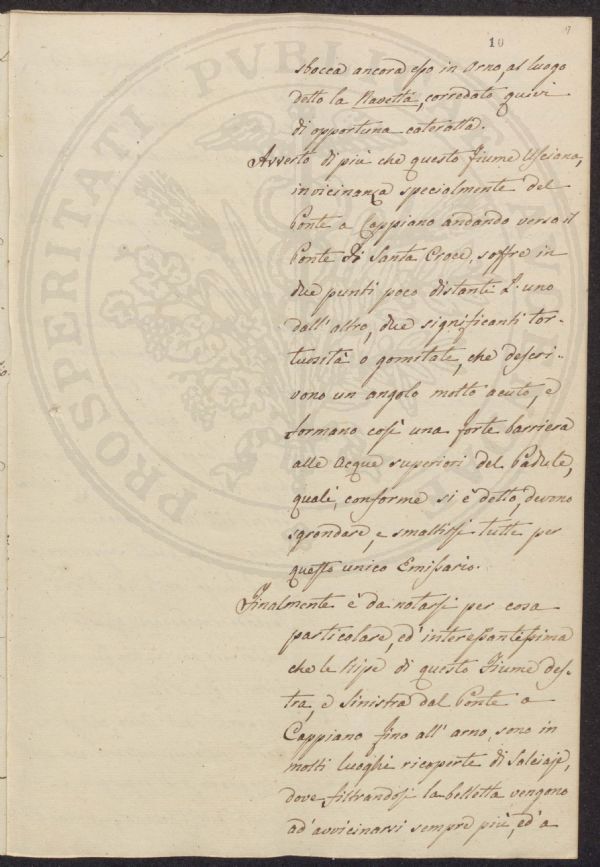 10
sbocca ancora esso in Arno, al luogo
detto la Navetta, corredato quivi
di opportuna cateratta.
Avverto di più che questo fiume Usciana,
in vicinanza specialmente del
Ponte a Cappiano andando verso il
Ponte di Santa Croce, soffre in
due punti poco distante l'uno
dall'altro, due significanti tor-
tuosità o gomitate, che descri-
vono un angolo molto acuto, e
formano così una forte barriera
alle Acque superiori del Padule,
quali, conforme si è detto, devono
sgrondare, e smaltirsi tutte per
questo unico Emissario.
Finalmente è da notarsi per cosa
particolare, ed interessantissima
che le Ripe di questo Fiume, des-
tra, e Sinistra dal Ponte a
Cappiano fino all'arno, sono in
molti luoghi ricoperte di Salciaje,
dove filtrandosi la belletta vengono
ad avvicinarsi sempre più, ed a
PROSPERITATI PUBLI